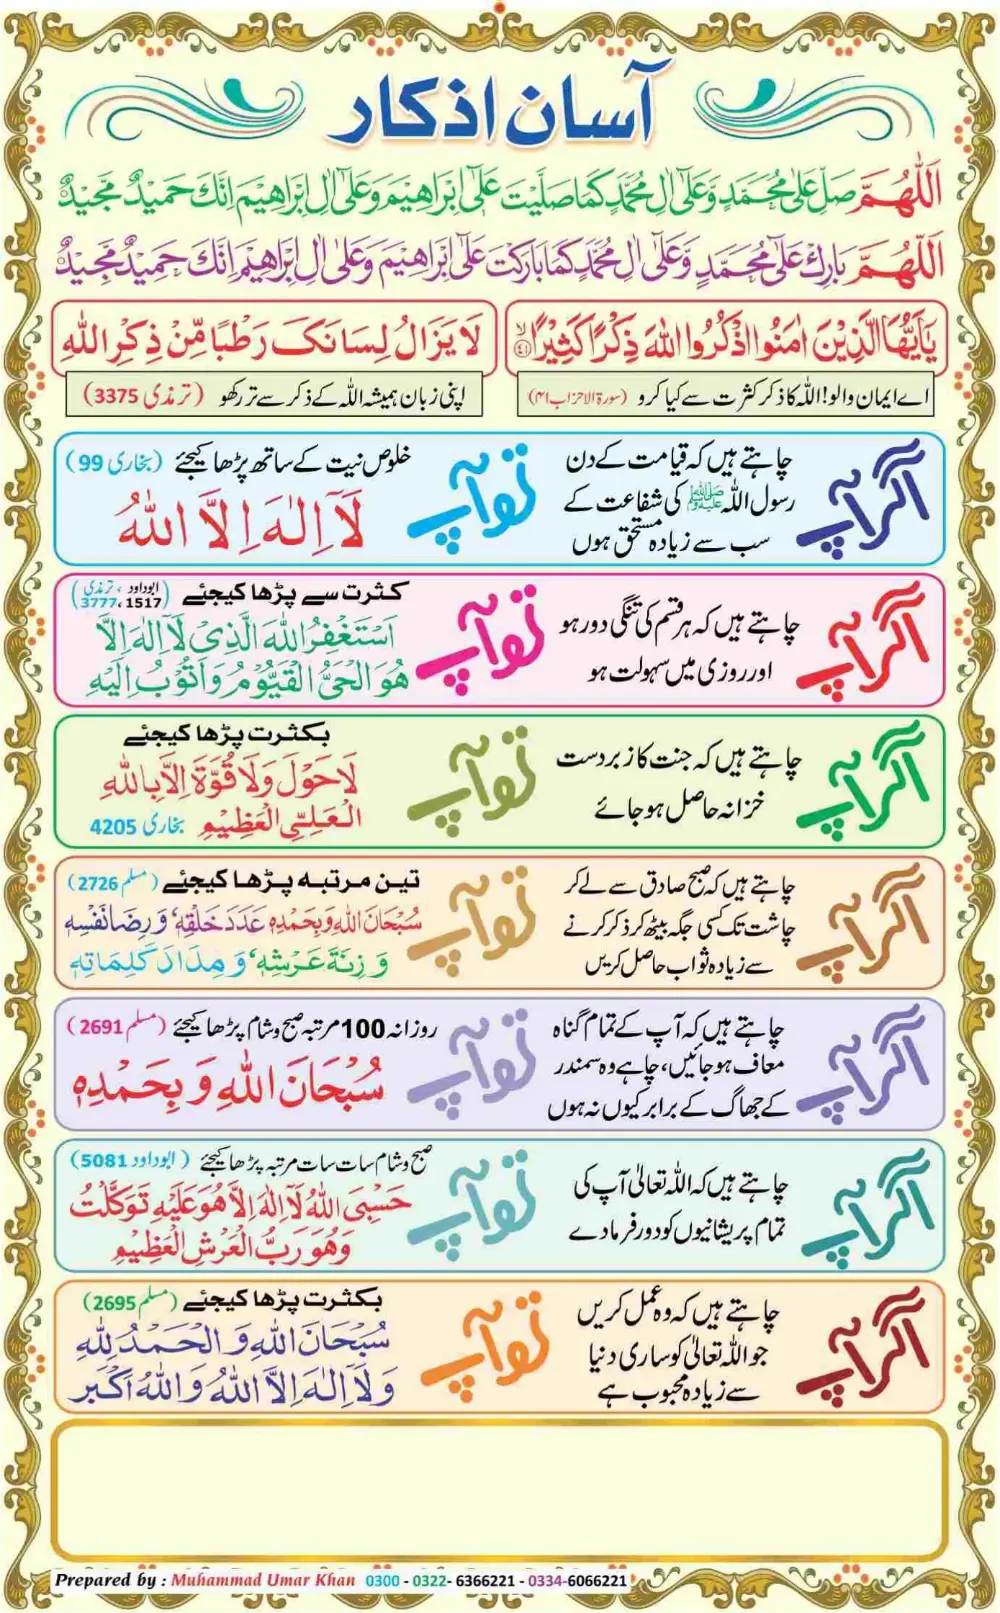 آسان اذکار
اَللّٰهُمَّ صَلِّ عَلٰی مُحَمَّدٍ وَّعَلٰٓی اٰلِ مُحَمَّدٍ کَمَا صَلَّیْتَ عَلٰٓی اِبْرَاهِیْمَ وَعَلٰٓی اٰلِ اِبْرَاهِیْمَ اِنَّكَ حَمِیْدٌ مَّجِیْدٌ
اَللّٰهُمَّ بَارِكْ عَلٰی مُحَمَّدٍ وَّعَلٰٓی اٰلِ مُحَمَّدٍ کَمَا بَارَکْتَ عَلٰٓی اِبْرَاهِیْمَ وَعَلٰٓی اٰلِ اِبْرَاهِیْمَ اِنَّكَ حَمِیْدٌ مَّجِیْدٌ
یٰۤاَیُّهَا الَّذِیْنَ اٰمَنُوا اذْکُرُوا اللّٰهَ ذِکْرًا کَثِیْرًا ﴿۴۱﴾
اے ایمان والو! اللہ کا ذکر کثرت سے کیا کرو (سورۃ الاحزاب ۴۱)
لَا یَزَالُ لِسَانَکَ رَطْبًا مِّنْ ذِکْرِ اللّٰهِ
اپنی زبان ہمیشہ اللہ کے ذکر سے تر رکھو (ترمذی 3375)
اگر آپ
چاہتے ہیں کہ قیامت کے دن
رسول اللہ ﷺ کی شفاعت کے
سب سے زیادہ مستحق ہوں
تو آپ
خلوص نیت کے ساتھ پڑھا کیجئے (بخاری 99)
لَآ اِلٰهَ اِلَّا اللّٰهُ
اگر آپ
چاہتے ہیں کہ ہر قسم کی تنگی دور ہو
اور روزی میں سہولت ہو
تو آپ
کثرت سے پڑھا کیجئے (ابوداود، ترمذی 1517، 3777)
اَسْتَغْفِرُ اللّٰهَ الَّذِیْ لَآ اِلٰهَ اِلَّا
هُوَ الْحَیُّ الْقَیُّوْمُ وَاَتُوْبُ اِلَیْهِ
اگر آپ
چاہتے ہیں کہ جنت کا زبردست
خزانہ حاصل ہو جائے
تو آپ
بکثرت پڑھا کیجئے
لَا حَوْلَ وَلَا قُوَّةَ اِلَّا بِاللّٰهِ
الْعَلِیِّ الْعَظِیْمِ بخاری 4205
اگر آپ
چاہتے ہیں کہ صبح صادق سے لے کر
چاشت تک کسی جگہ بیٹھ کر ذکر کرنے
سے زیادہ ثواب حاصل کریں
تو آپ
تین مرتبہ پڑھا کیجئے (مسلم 2726)
سُبْحَانَ اللّٰهِ وَبِحَمْدِهٖ عَدَدَ خَلْقِهٖ، وَرِضَا نَفْسِهٖ
وَزِنَةَ عَرْشِهٖ، وَمِدَادَ کَلِمَاتِهٖ
اگر آپ
چاہتے ہیں کہ آپ کے تمام گناہ
معاف ہو جائیں، چاہے وہ سمندر
کے جھاگ کے برابر کیوں نہ ہوں
تو آپ
روزانہ 100 مرتبہ صبح و شام پڑھا کیجئے (مسلم 2691)
سُبْحَانَ اللّٰهِ وَبِحَمْدِهٖ
اگر آپ
چاہتے ہیں کہ اللہ تعالیٰ آپ کی
تمام پریشانیوں کو دور فرما دے
تو آپ
صبح و شام سات سات مرتبہ پڑھا کیجئے (ابوداود 5081)
حَسْبِیَ اللّٰهُ لَآ اِلٰهَ اِلَّا هُوَ عَلَیْهِ تَوَکَّلْتُ
وَهُوَ رَبُّ الْعَرْشِ الْعَظِیْمِ
اگر آپ
چاہتے ہیں کہ وہ عمل کریں
جو اللہ تعالیٰ کو ساری دنیا
سے زیادہ محبوب ہے
تو آپ
بکثرت پڑھا کیجئے (مسلم 2695)
سُبْحَانَ اللّٰهِ وَالْحَمْدُ لِلّٰهِ
وَلَآ اِلٰهَ اِلَّا اللّٰهُ وَاللّٰهُ اَکْبَر
Prepared by : Muhammad Umar Khan 0300 - 0322- 6366221 - 0334-6066221